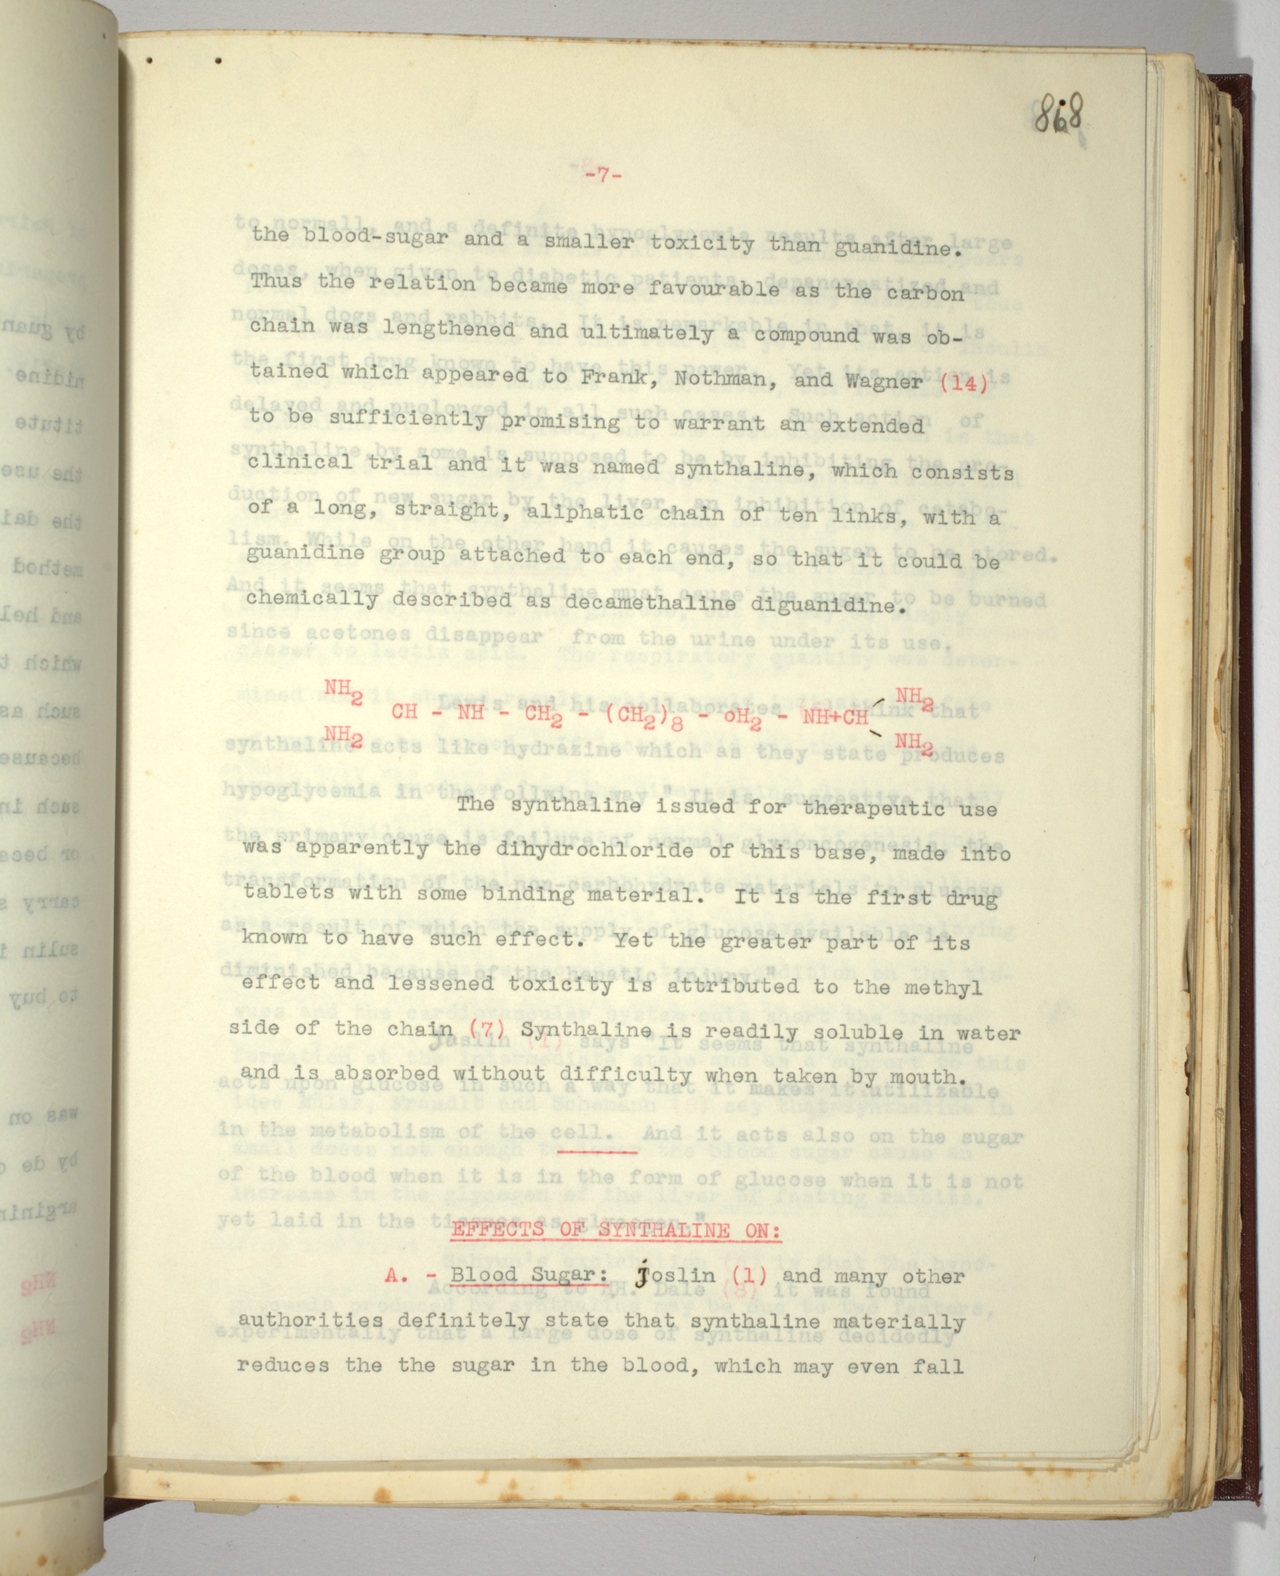 868
-7-
the blood-sugar and a smaller toxicity than guanidine.
Thus the relation became more favourable as the carbon
chain was lengthened and ultimately a compound was ob-
tained which appeared to Frank, Nothman, and Wagner (14)
to be sufficiently promising to warrant an extended
clinical trial and it was named synthaline, which consists
of a long, straight, aliphatic chain of ten links, with a
guanidine group attached to each end, so that it could be
chemically described as decamethaline diguanidine.
NH2 NH2
CH - NH - CH2 - (CH2)8 - oH2 - NH+CH
NH2 NH2
The synthaline issued for therapeutic use
was apparently the dihydrochloride of this base, made into
tablets with some binding material. It is the first drug
known to have such effect. Yet the greater part of its
effect and lessened toxicity is attributed to the methyl
side of the chain (7) Synthaline is readily soluble in water
and is absorbed without difficulty when taken by mouth.
EFFECTS OF SYNTHALINE ON:
A. - Blood Sugar: joslin (1) and many other
authorities definitely state that synthaline materially
reduces the the sugar in the blood, which may even fall